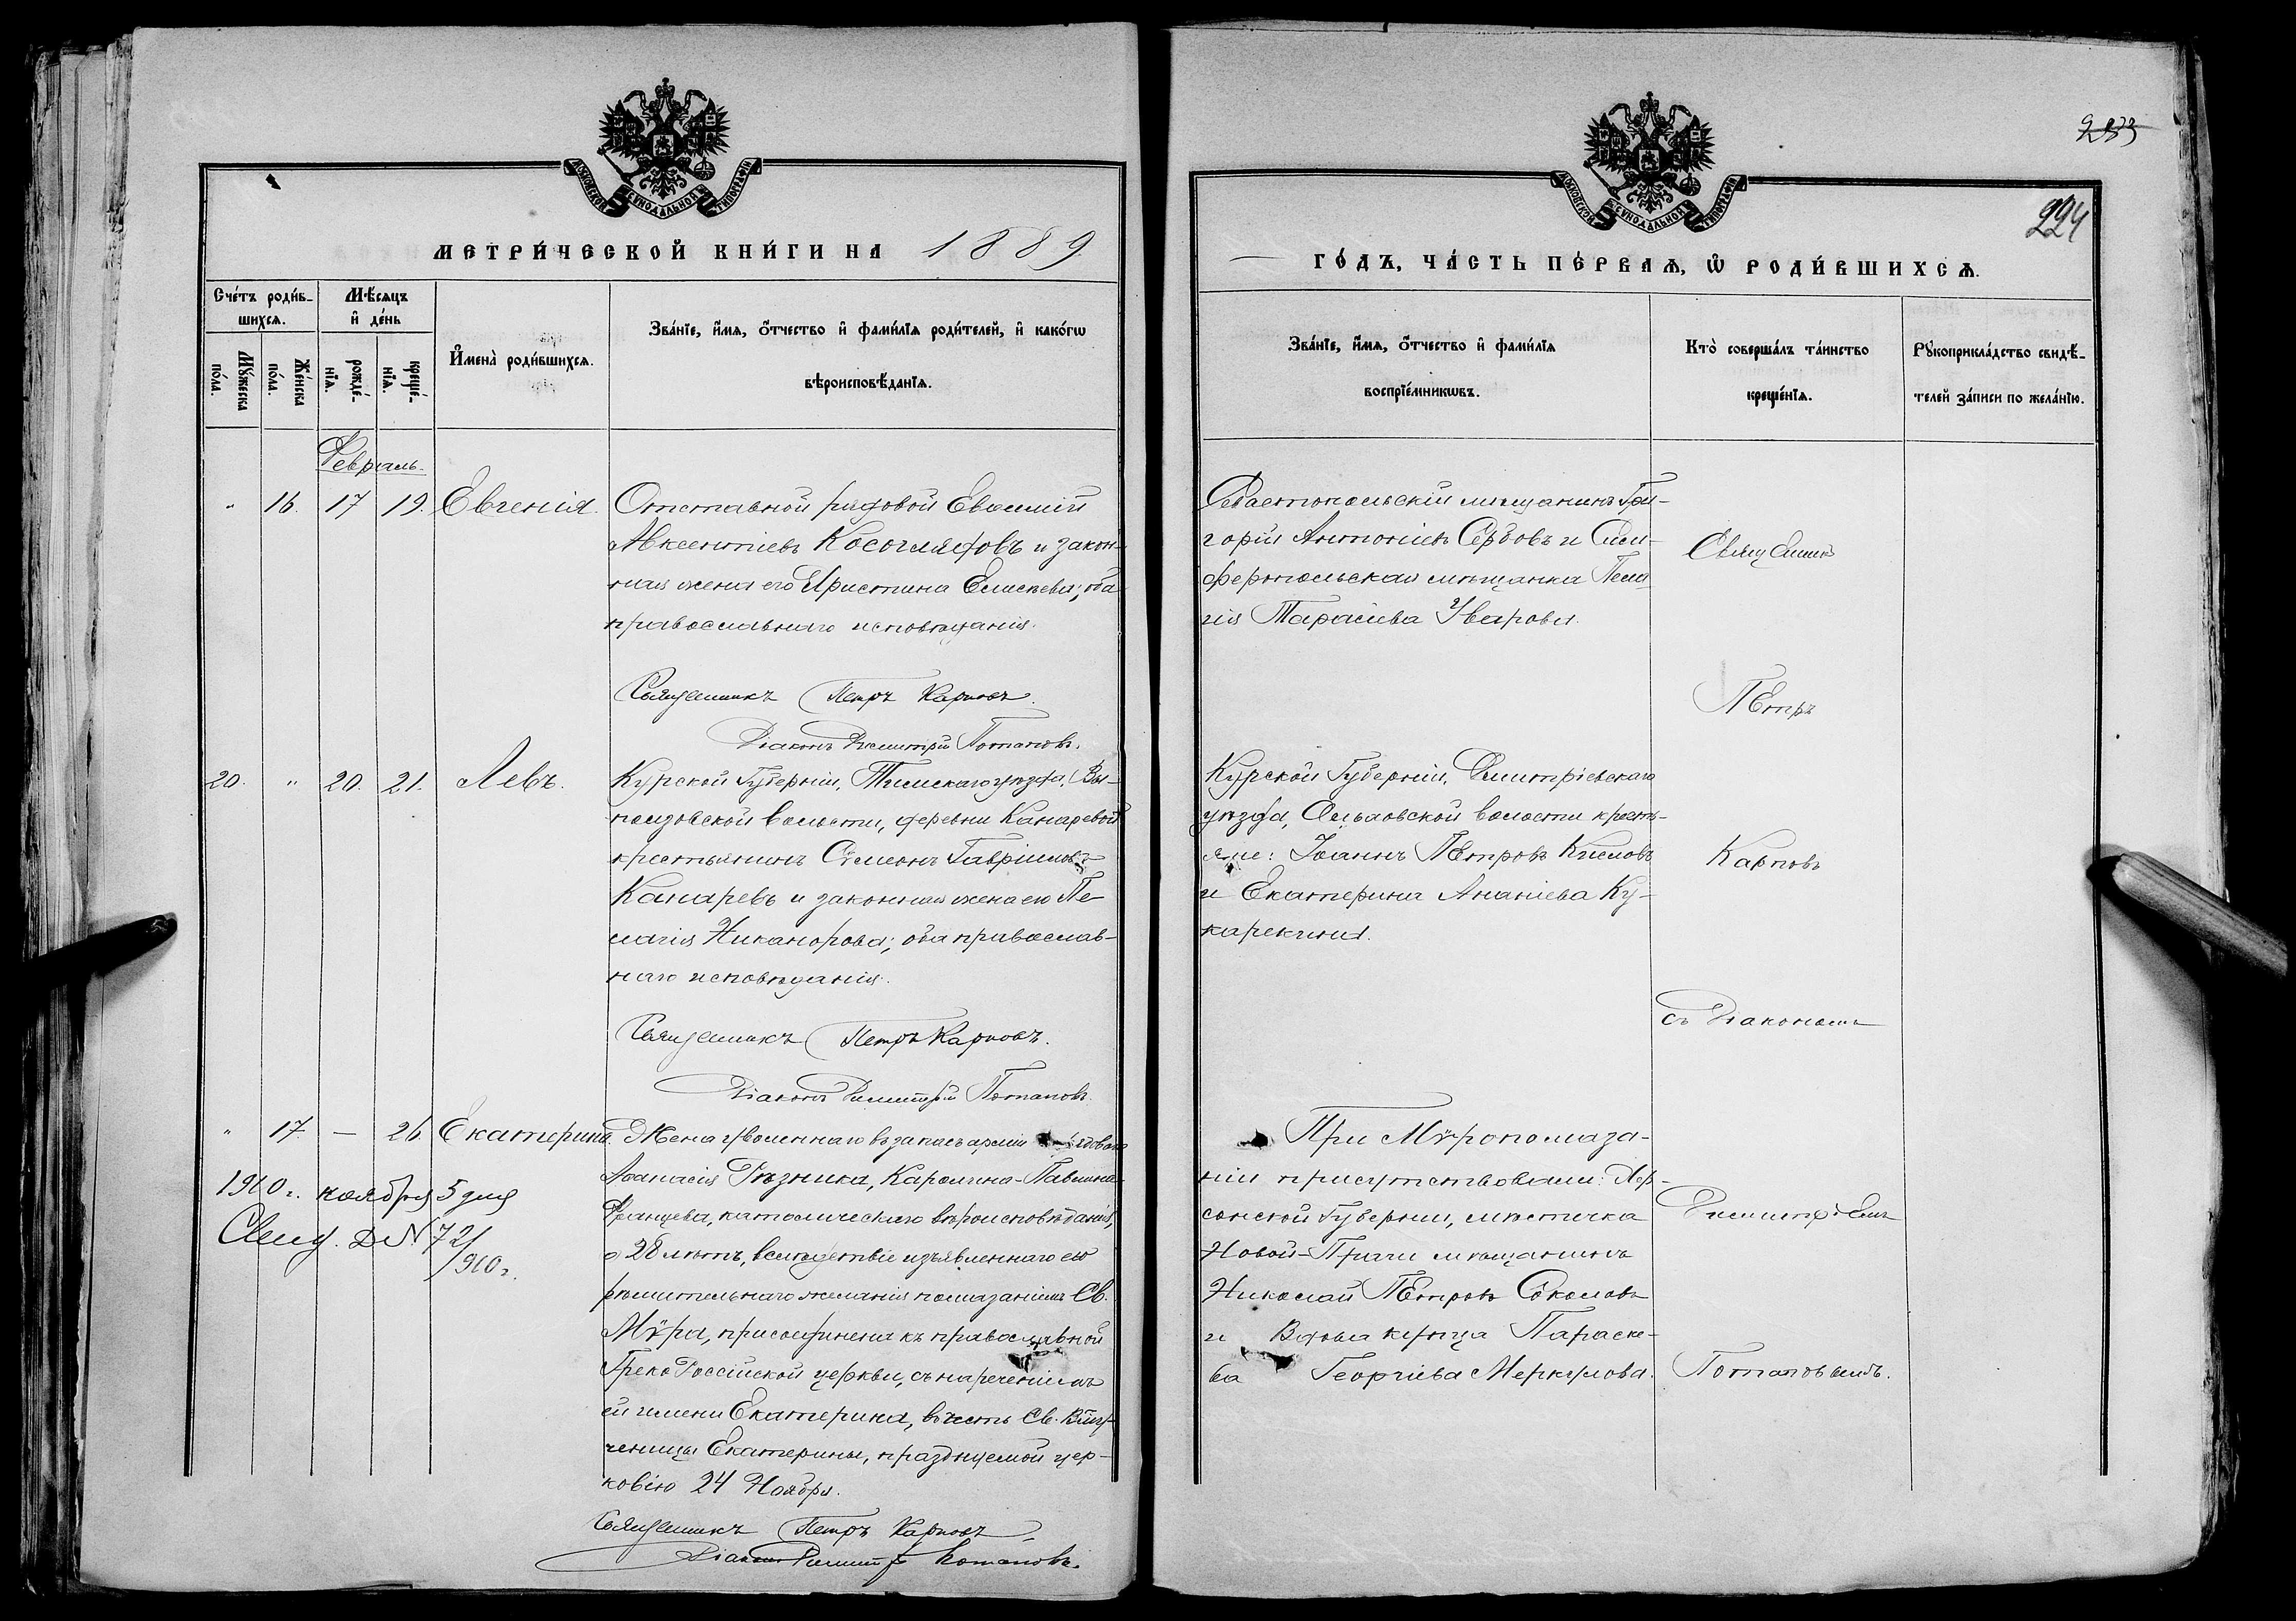 МОСКОВСКОЙ СѴНОДАЛЬНОЙ ТИПОГРАФІИ
МЕТРИ́ЧЕСКОЙ КНИ́ГИ НА 1889
Сче́тъ роди́в-
шихся.
Мѣ́сяцъ
и҆ де́нь
Мꙋ́жеска
по́ла.
Же́нска
по́ла.
рожде́-
нїѧ.
креще́-
нїѧ.
И҆мена̀ роди́вшихсѧ.
Зва́нїе, и҆́мѧ, ѻ҆́тчество и҆ фами́лїѧ роди́телей, и҆ како́гѡ
вѣроисповѣ́данїѧ.
Февраль.
" 16. 17 19. Евгенія. Отставной рядовой Евѳимій
Авксентіевъ Косоглядовъ и закон-
ная жена его Христина Елисѣева; оба
православнаго исповѣданія.
Священникъ Петръ Карповъ.
Діаконъ Димитрій Потаповъ.
20. " 20. 21. Левъ. Курской Губерніи, Тимскаго уѣзда, Вы-
ползовской волости, деревни Канаревой
крестьянинъ Симеонъ Гавріиловъ
Канаревъ и законная жена его Пе-
лагія Никанорова; оба православ-
наго исповѣданія.
Священникъ Петръ Карповъ.
Діаконъ Димитрій Потаповъ.
" 17. — 26. Екатерина. Жена уволеннаго въ запасъ арміи рядоваго
Аѳанасія Рѣзника, Каролина-Павлина
Францева, католическаго вѣроисповѣданія,
о 28 лѣтъ, вслѣдствіе изъявленнаго ею
рѣшительнаго желанія помазаніемъ Св.
Мѵра, присоединена къ православной
Греко Россійской церкви, съ нареченіемъ
ей имени Екатерина, въ честь Св. Влму-
ченицы Екатерины, празднуемой цер-
ковію 24 Ноября.
Священникъ Петръ Карповъ
Діаконъ Димитрій Потаповъ.
1910 г. ноября 5 дня
Свид. д. N 72/
910 г.
224
МОСКОВСКОЙ СѴНОДАЛЬНОЙ ТИПОГРАФІИ
ГО́ДЪ, ЧА́СТЬ ПЕ́РВАѦ, Ѡ҆ РОДИ́ВШИХСѦ.
Зва́нїе, и҆́мѧ, ѻ҆́тчество и҆ фами́лїѧ
воспрїе́мникѡвъ.
Кто̀ соверша́лъ та́инство
креще́нїѧ.
Рꙋкоприкла́дство свидѣ́-
телей за́писи по жела́нїю.
Севастопольскій мѣщанинъ Гри-
горій Антоніевъ Сербовъ и Сим-
феропольская мѣщанка Пела-
гія Тарасіева Уварова.
Священникъ
Петръ
Курской Губерніи, Дмитріевскаго
уѣзда, Сельской волости кресть-
яне: Іоаннъ Петровъ Киселовъ
и Екатерина Ананіева Ку-
карекина.
Карповъ
съ Діакономъ
При Мѵропомаза-
ніи присутствовали: Хер-
сонской Губерніи, мѣстечка
Новой-Праги мѣщанинъ
Николай Петровъ Соколовъ
и Вдова купца Параске-
ва Георгіева Меркулова.
Димитріемъ
Потаповымъ.